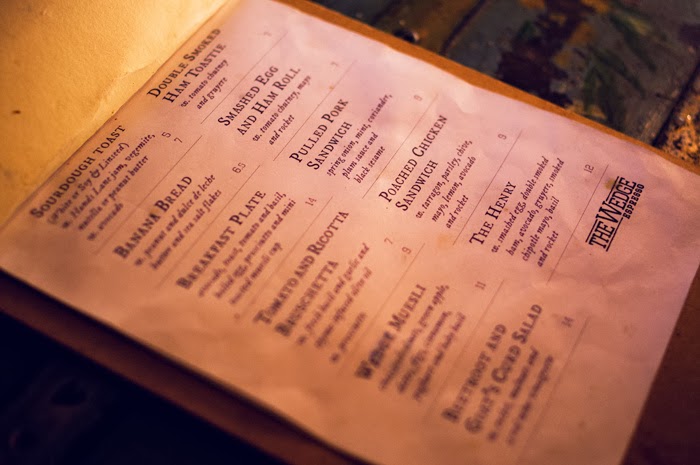 SOURDOUGH TOAST 5
(White or Soy & Linseed)
w. Hands Lane jam, vegemite,
nutella or peanut butter
w. avocado 7
BANANA BREAD 6.5
w. peanut and dulce de leche
butter and sea salt flakes
BREAKFAST PLATE 14
avocado, roast tomato and basil,
boiled egg, prosciutto and mini
toasted muesli cup
TOMATO AND RICOTTA 7
BRUSCHETTA
w. fresh basil and garlic and
thyme infused olive oil
w. prosciutto 9
WEDGE MUESLI 11
green apple,
BEETROOT AND 14
GOAT'S CURD SALAD
DOUBLE SMOKED 7
HAM TOASTIE
w. tomato chutney
and gruyere
SMASHED EGG 7
AND HAM ROLL
w. tomato chutney, mayo
and rocket
PULLED PORK 9
SANDWICH
spring onion, mint, coriander,
plum sauce and
black sesame
POACHED CHICKEN 9
SANDWICH
w. tarragon, parsley, chive,
mayo, lemon, avocado
and rocket
THE HENRY 12
w. smashed egg, double smoked
ham, avocado, gruyere, smoked
chipotle mayo, basil
and rocket
THE WEDGE
ESPRESSO